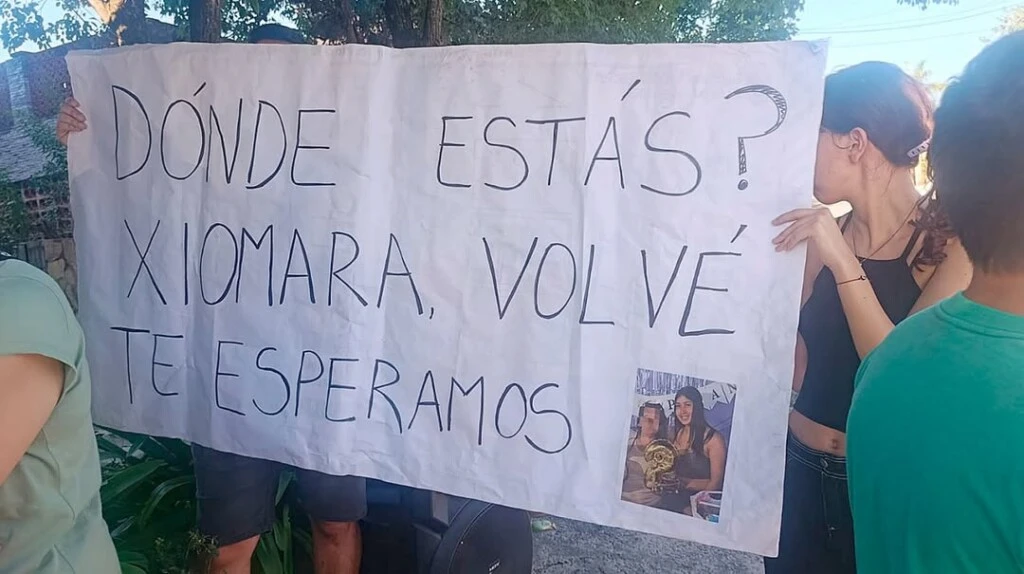 DÓNDE ESTÁS?
XIOMARA, VOLVÉ
TE ESPERAMOS